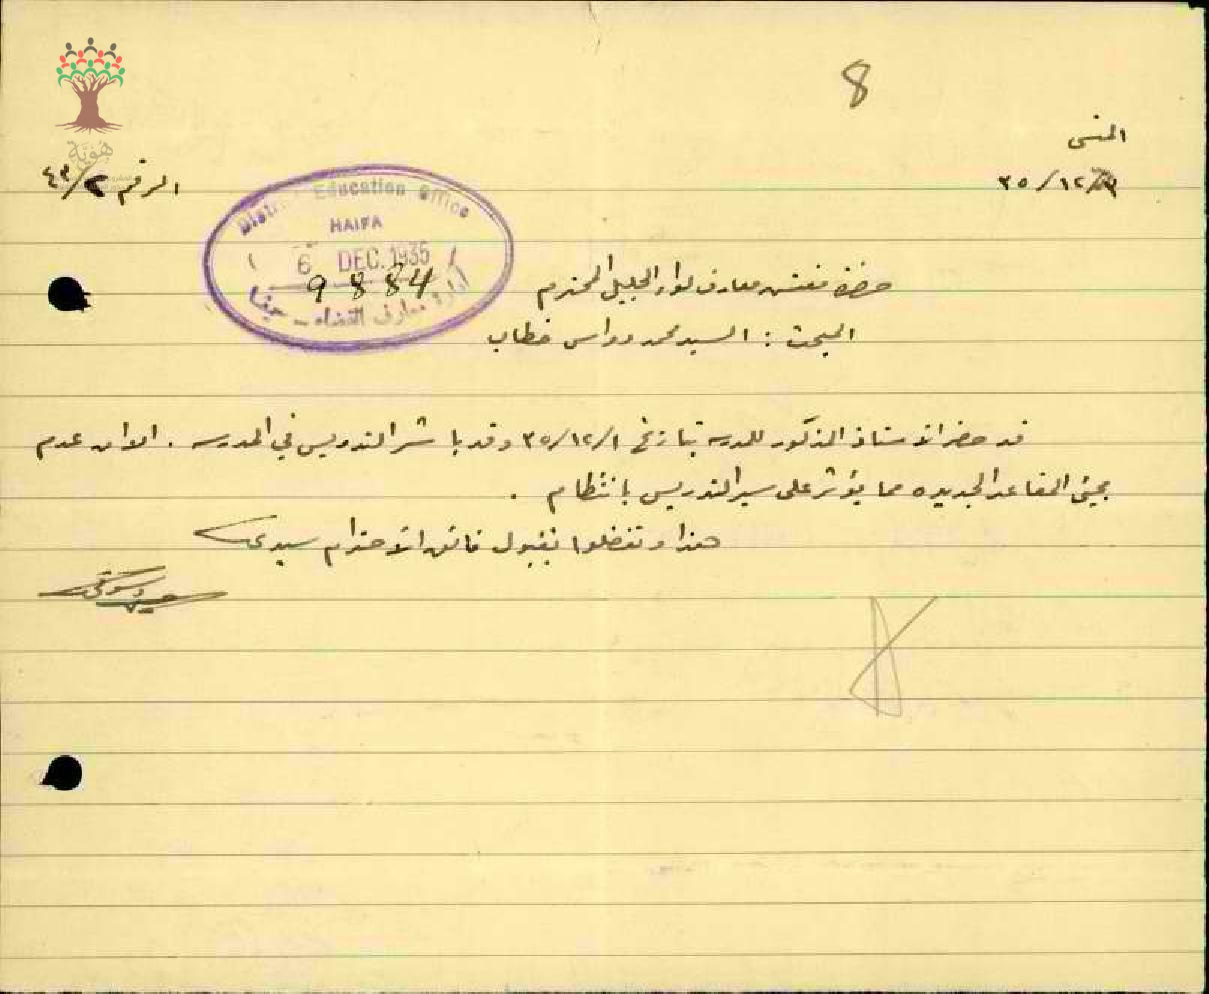 8
المنسي
٣٥/١٢/٣
الرقم ٤٣/٢
هوية
District Education Office
HAIFA
6 DEC. 1935
9884
ادارة معارف القضاء - حيفا
حضرة مفتش معارف لواء الجليل المحترم
المبحث : السيد محمد دواس خطاب
قد حضر الاستاذ المذكور للمدرسه بتاريخ ٣٥/١٢/١ وقد باشر التدريس في المدرسه . الا ان عدم
مجيئ المقاعد الجديده مما يؤثر على سير التدريس بانتظام .
هذا وتفضلوا بقبول فائق الاحترام سيدي